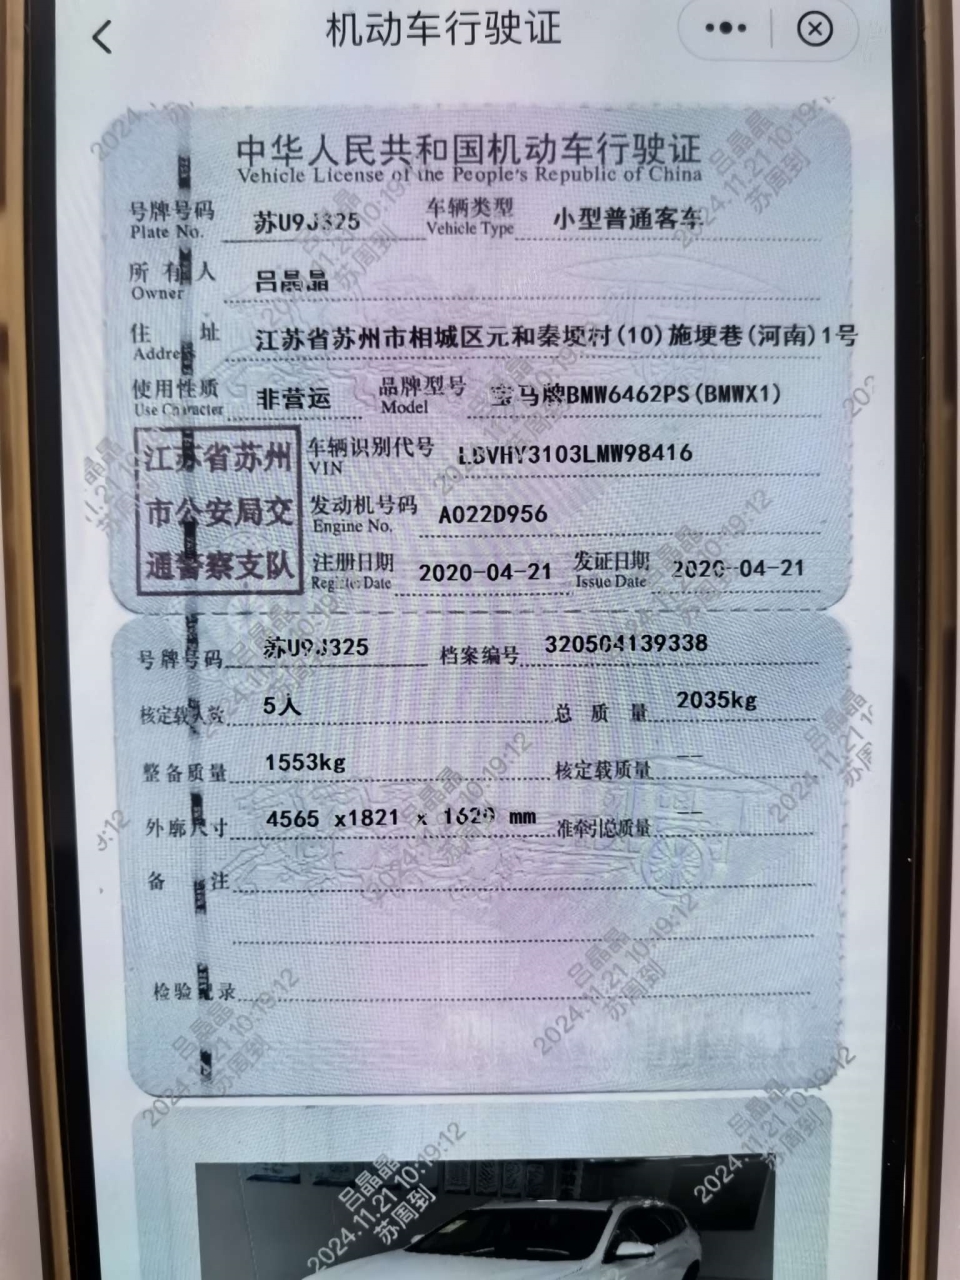 机动车行驶证
中华人民共和国机动车行驶证
Vehicle License of the People's Republic of China
号牌号码 苏U9J325 车辆类型 小型普通客车
Plate No. Vehicle Type
所有人 吕晶晶
Owner
住址 江苏省苏州市相城区元和秦埂村(10)施埂巷(河南)1号
Address
使用性质 非营运 品牌型号 宝马牌BMW6462PS(BMWX1)
Use Character Model
江苏省苏州
市公安局交
通警察支队
车辆识别代号 LBVHY3103LMW98416
VIN
发动机号码 A022D956
Engine No.
注册日期 2020-04-21 发证日期 2020-04-21
Register Date Issue Date
号牌号码 苏U9J325 档案编号 320504139338
核定载人数 5人 总质量 2035kg
整备质量 1553kg 核定载质量 --
外廓尺寸 4565 x1821 x 1620 mm 准牵引总质量 --
备注
检验记录
吕晶晶
2024.11.21 10:19:12
苏周到